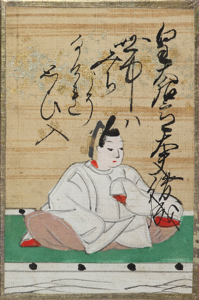 皇太后宮大夫俊成
世中よ
みちこそ
なけれ
おもひ入